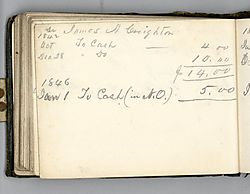 Dr James A Creighton
1842
Oct To Cash 4.00
Dec 28 " Do 10.00
$14.00
1846
Jan 1 To Cash (in N.O.) 5.00